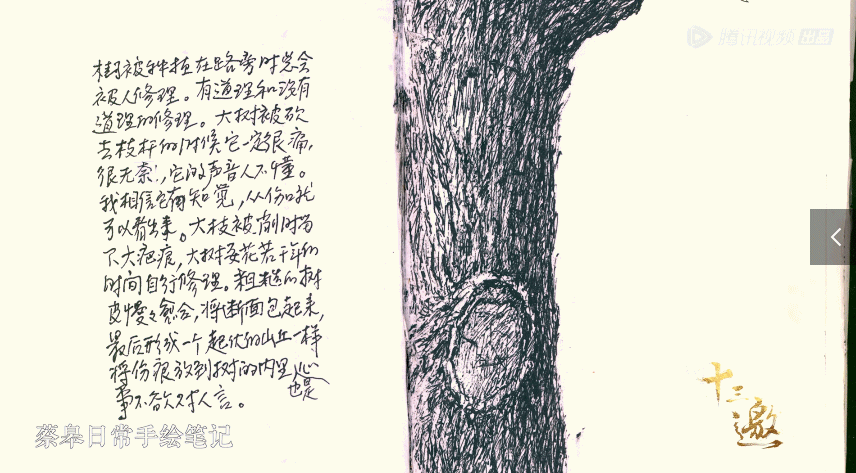 树被种植在路旁时总会
被人修理。有道理和没有
道理的修理。大树被砍
去枝杆的时候它一定很痛,
很无奈!,它的声音人不懂。
我相信它有知觉,从伤口就
可以看出来。大枝被削时留
下大疤痕,大树要花若干年的
时间自行修理。粗糙的树
皮慢々愈合,将断面包起来,
最后形成一个起伏的山丘一样
将伤痕放到树的内里,心
事也是不欲对人言。
蔡皋日常手绘笔记
腾讯视频 出品
十三邀